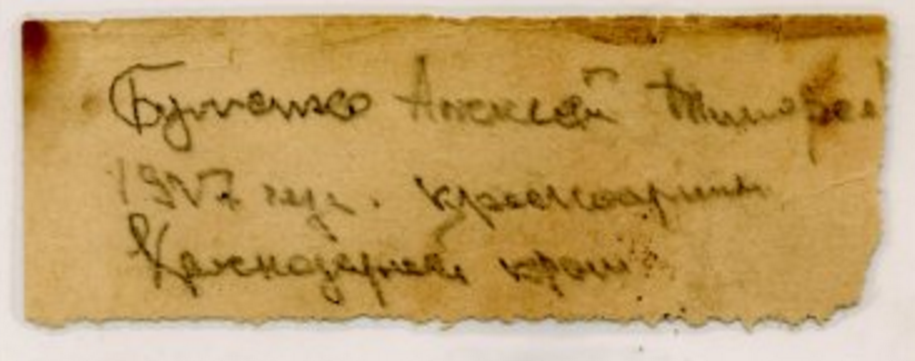 Бутенко Алексей Тимофее
года. красноармеец
Краснодарский край